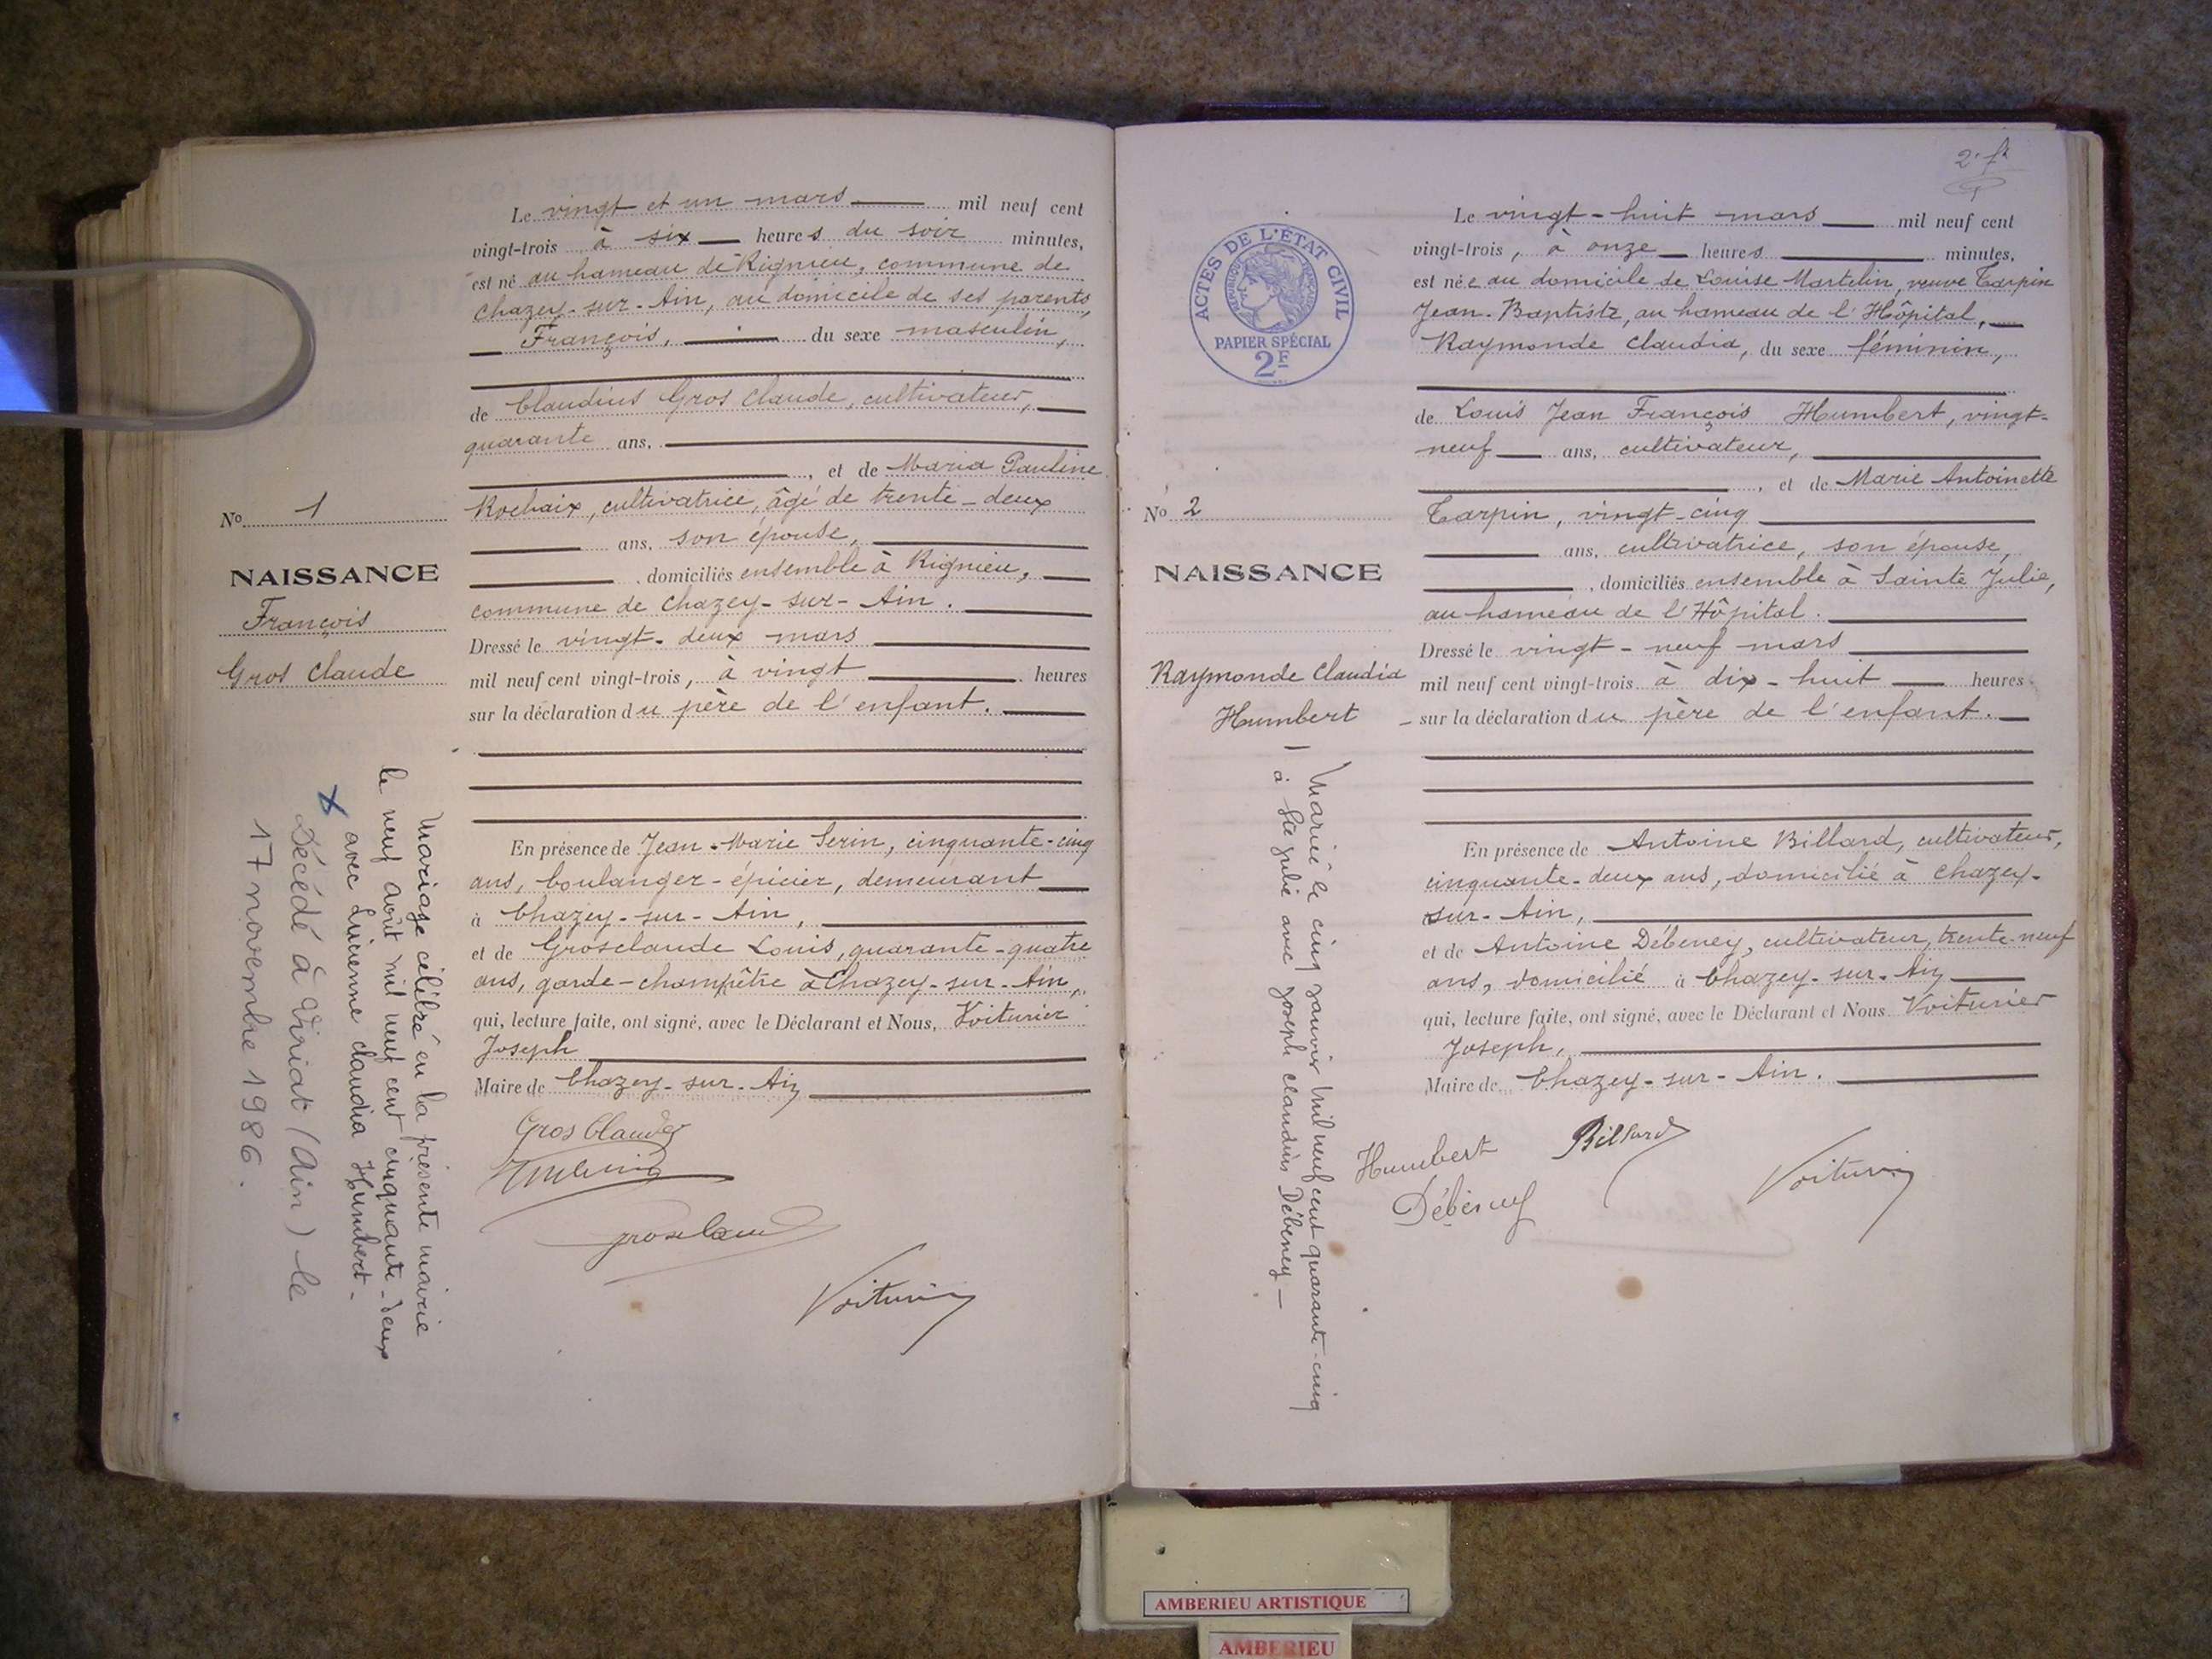 Le vingt et un mars mil neuf cent
vingt-trois à six heures du soir minutes,
est né au hameau de Rignieu, commune de
Chazey-sur-Ain, au domicile de ses parents,
François, du sexe masculin,
de Claudius Gros Claude, cultivateur,
quarante ans,
, et de Maria Pauline
Rochaix, cultivatrice, âgé de trente-deux
ans, son épouse,
, domiciliés ensemble à Rignieu,
commune de Chazey-sur-Ain.
Dressé le vingt-deux mars
mil neuf cent vingt-trois, à vingt heures
sur la déclaration du père de l'enfant.
En présence de Jean-Marie Serin, cinquante-cinq
ans, boulanger-épicier, demeurant
à Chazey-sur-Ain,
et de Grosclaude Louis, quarante-quatre
ans, garde-champêtre à Chazey-sur-Ain,
qui, lecture faite, ont signé, avec le Déclarant et Nous, Voiturier
Joseph
Maire de Chazey-sur-Ain
Gros Claude
Grosclaude
Voiturier
No 1
NAISSANCE
François
Gros Claude
Mariage célébré en la présente mairie
le neuf août mil neuf cent cinquante-deux
avec Lucienne Claudia Humbert-
x
Décédé à Viriat (Ain) le
17 novembre 1986.
2
ACTES DE L'ÉTAT CIVIL
RÉPUBLIQUE FRANÇAISE
PAPIER SPÉCIAL
2F
Le vingt-huit mars mil neuf cent
vingt-trois, à onze heures minutes,
est née au domicile de Louise Martelin, veuve Tarpin
Jean-Baptiste, au hameau de l'Hôpital,
Raymonde Claudia, du sexe féminin,
de Louis Jean François Humbert, vingt-
neuf ans, cultivateur,
, et de Marie Antoinette
Tarpin, vingt-cinq
ans, cultivatrice, son épouse,
, domiciliés ensemble à Sainte Julie,
au hameau de l'Hôpital.
Dressé le vingt-neuf mars
mil neuf cent vingt-trois à dix-huit heures
sur la déclaration du père de l'enfant.
En présence de Antoine Billard, cultivateur,
cinquante-deux ans, domicilié à Chazey-
sur-Ain,
et de Antoine Débeney, cultivateur, trente-neuf
ans, domicilié à Chazey-sur-Ain
qui, lecture faite, ont signé, avec le Déclarant et Nous Voiturier
Joseph,
Maire de Chazey-sur-Ain.
Humbert Billard
Débeney
Voiturier
No 2
NAISSANCE
Raymonde Claudia
Humbert
Mariée le cinq janvier mil neuf cent quarante-cinq
à Ste Julie avec Joseph Claudius Débeney-
AMBERIEU ARTISTIQUE
AMBERIEU